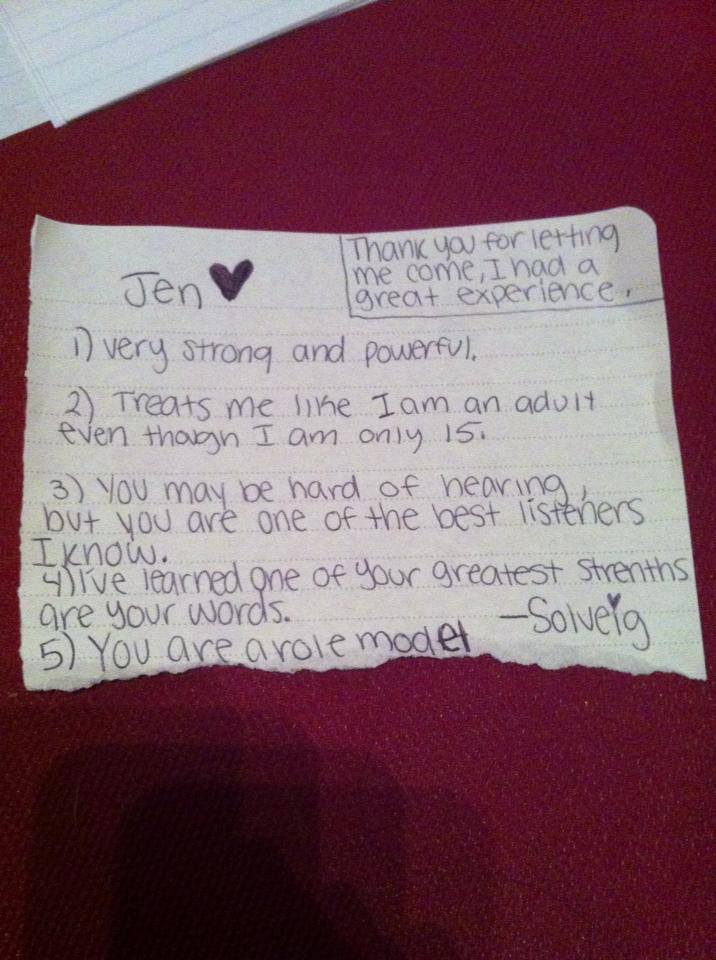 Jen ♥
Thank you for letting
me come, I had a
great experience.
1) very strong and powerful.
2) Treats me like I am an adult
even though I am only 15.
3) You may be hard of hearing,
but you are one of the best listeners
I know.
4) I've learned one of your greatest strenths
are your words.
—Solveig
5) You are a role model